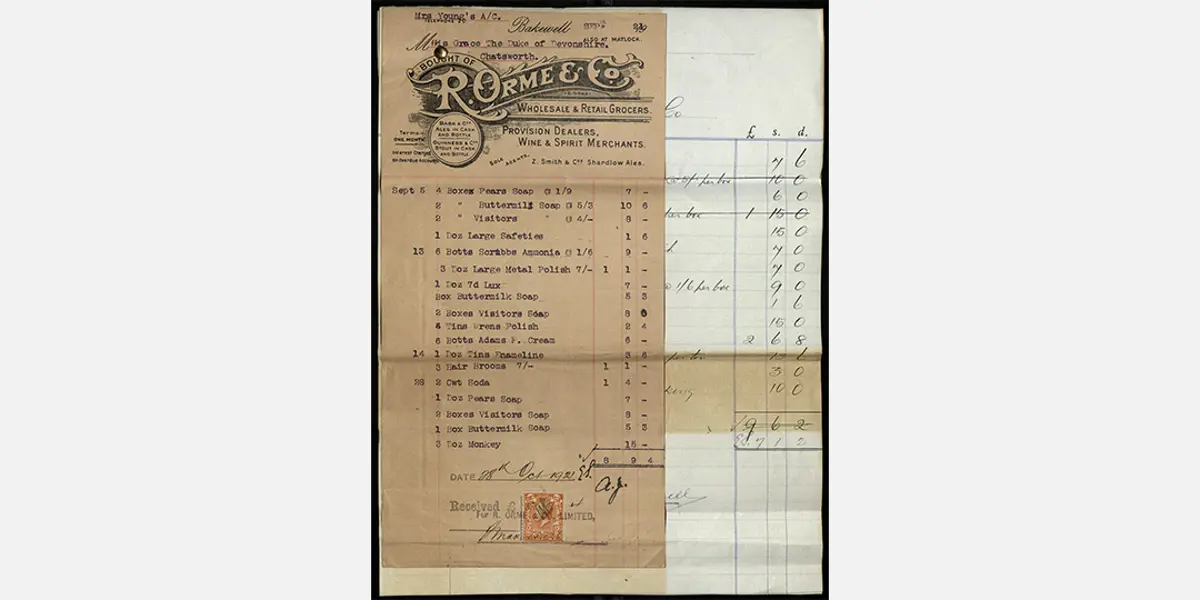 Mrs Young's A/C.
TELEPHONE 20
Bakewell
ALSO AT MATLOCK.
M His Grace The Duke of Devonshire.
Chatsworth.
BOUGHT OF
R. ORME & Co.
WHOLESALE & RETAIL GROCERS.
BASS & Cos
ALES IN CASK
AND BOTTLE
GUINNESS & Cos
STOUT IN CASK
AND BOTTLE.
Terms:-
ONE MONTH.
Interest Charged
on Overdue Accounts
PROVISION DEALERS,
WINE & SPIRIT MERCHANTS.
SOLE AGENTS. Z. Smith & Cos Shardlow Ales.
Sept 5 4 Boxes Pears Soap @ 1/9 7 -
2 " Buttermilk Soap @ 5/3 10 6
2 " Visitors " @ 4/- 8 -
1 Doz Large Safeties 1 6
13 6 Botts Scrubbs Ammonia @ 1/6 9 -
3 Doz Large Metal Polish 7/- 1 1 -
1 Doz 7d Lux 7 -
Box Buttermilk Soap 5 3
2 Boxes Visitors Soap 8
Tins Wrens Polish 2 4
6 Botts Adams F. Cream 6 -
14 1 Doz Tins Enameline 3 6
3 Hair Brooms 7/- 1 1 -
28 2 Cwt Soda 1 4 -
1 Doz Pears Soap 7 -
2 Boxes Visitors Soap 8 -
1 Box Buttermilk Soap 5 3
3 Doz Monkey 15 -
8 9 4
DATE 28th Oct 1921
A.J.
Received £
For R. ORME & CO. LIMITED,
Co
£ s. d.
7 6
@ 5/- per box 10 0
6 0
per box 1 15 0
15 0
7 0
7 0
@ 1/6 per box 9 0
1 6
15 0
2 6 8
3 0
10 0
9 6 2
7 1 2